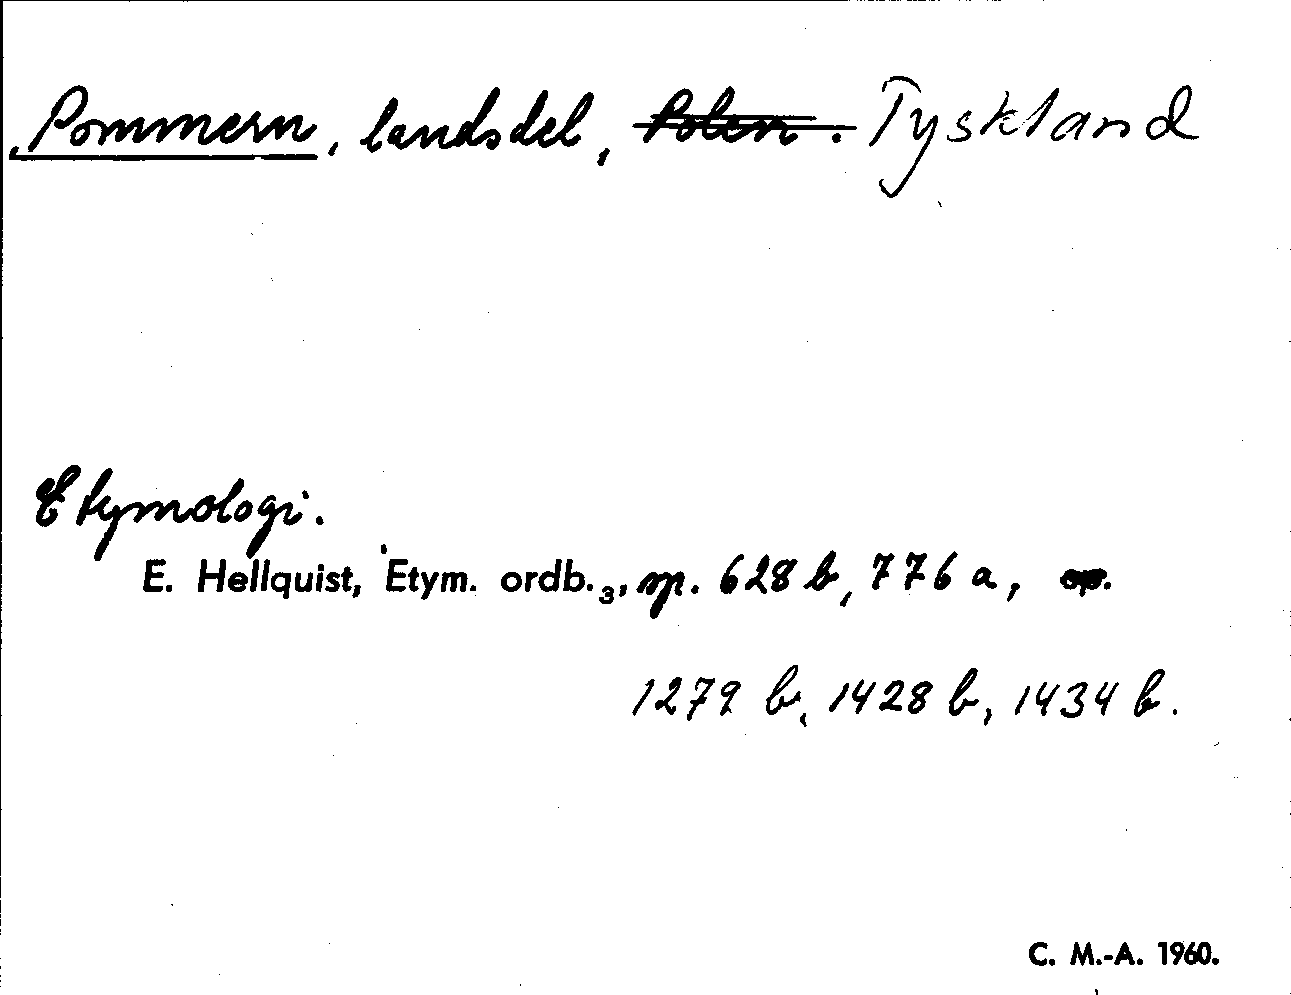 Pommern, landsdel, Polen. Tyskland
Etymologi.
E. Hellquist, Etym. ordb.₃, sp. 628 b, 776 a, sp.
1279 b, 1428 b, 1434 b.
C. M.-A. 1960.